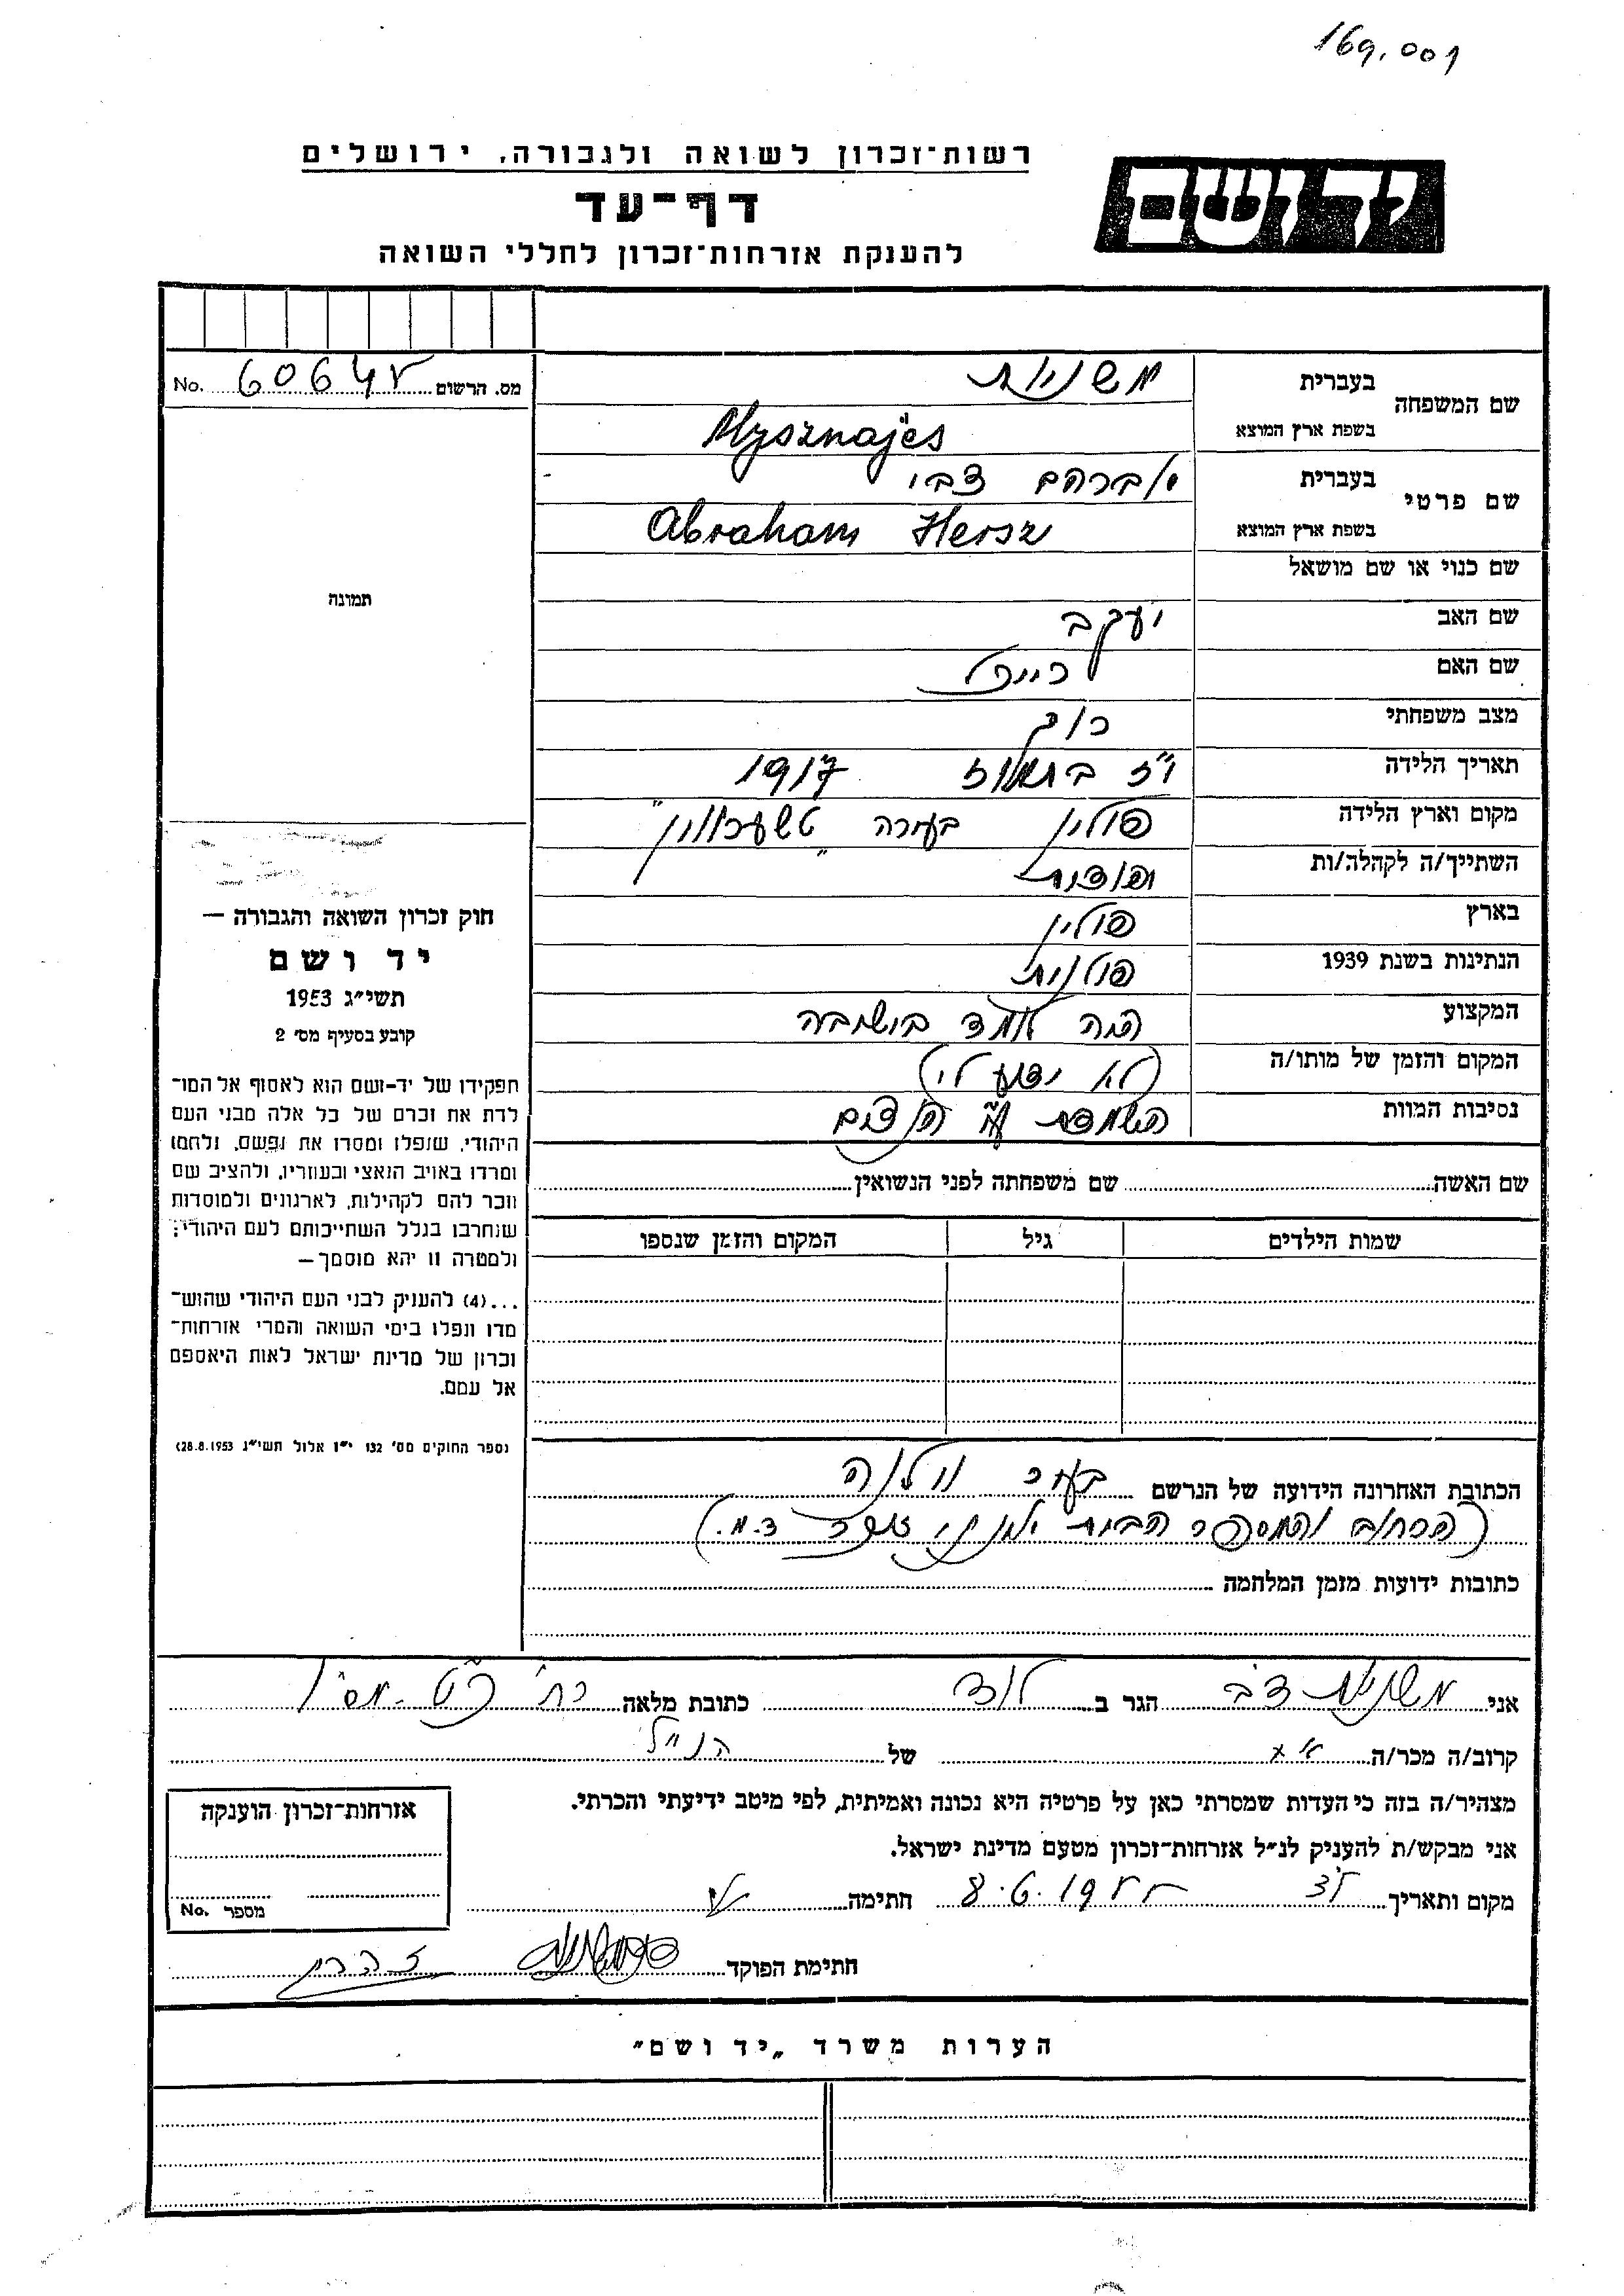 169.001
רשות־זכרון לשואה ולגבורה, ירושלים
יד ושם
דף־עד
להענקת אזרחות־זכרון לחללי השואה
מס. הרשום No.
שם המשפחה
בעברית משניות
בשפת ארץ המוצא Mysznajes
שם פרטי
בעברית אברהם צבי
בשפת ארץ המוצא Abraham Hersz
שם כנוי או שם מושאל
שם האב יעקב
שם האם רייזל
מצב משפחתי רוק
תאריך הלידה י"ז בתמוז 1917
מקום וארץ הלידה פולין בעירה
השתייך/ה לקהלה/ות
בארץ פולין
הנתינות בשנת 1939 פולנית
המקצוע היה לומד בישיבה
המקום והזמן של מותו/ה (לא ידוע לי)
נסיבות המוות השמדת ע"י הנאצים
שם האשה שם משפחתה לפני הנשואין
שמות הילדים גיל המקום והזמן שנספו
הכתובת האחרונה הידועה של הנרשם בעיר וילנה
(הרחוב והמספר הבית אינני זוכר
כתובות ידועות מזמן המלחמה
תמונה
חוק זכרון השואה והגבורה —
יד ושם
תשי״ג 1953
קובע בסעיף מס׳ 2
תפקידו של יד-ושם הוא לאסוף אל המו־
לדת את זכרם של כל אלה מבני העם
היהודי, שנפלו ומסרו את נפשם, נלחמו
ומרדו באויב הנאצי ובעוזריו, ולהציב שם
וזכר להם לקהילות, לארגונים ולמוסדות
שנחרבו בגלל השתייכותם לעם היהודי;
ולמטרה זו יהא מוסמך —
...(4) להעניק לבני העם היהודי שהוש־
מדו ונפלו בימי השואה והמרי אזרחות־
זכרון של מדינת ישראל לאות היאספם
אל עמם.
(ספר החוקים מס׳ 132 י״ז אלול תשי״ג 28.8.1953)
אני משניות דב הגר ב לוד כתובת מלאה
קרוב/ה מכר/ה אח של הנ"ל
מצהיר/ה בזה כי העדות שמסרתי כאן על פרטיה היא נכונה ואמיתית, לפי מיטב ידיעתי והכרתי.
אני מבקש/ת להעניק לנ״ל אזרחות־זכרון מטעם מדינת ישראל.
מקום ותאריך לוד 8.6.1955 חתימה
חתימת הפוקד
אזרחות־זכרון הוענקה
מספר No.
הערות משרד „יד ושם״